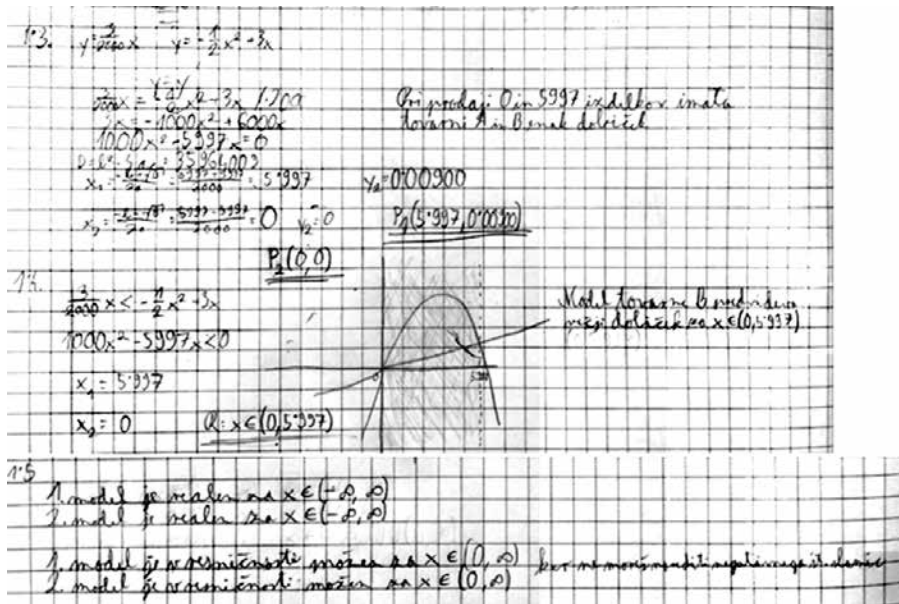 1.3. y = 3/2000 x y = -1/2 x² + 3x
y = y
3/2000 x = -1/2 x² + 3x /·2000
3x = -1000x² + 6000x
1000x² - 5997x = 0
D = b² - 4ac = 35964009
x₁ = (-b+√D)/2a = (5997+5997)/2000 = 5'997 y₁ = 0'00900
x₂ = (-b-√D)/2a = (5997-5997)/2000 = 0 y₂ = 0 P₁(5'997, 0'00900)
P₂(0,0)
Pri prodaji 0 in 5997 izdelkov imata
tovarni A in B enak dobiček
1.4.
3/2000 x < -1/2 x² + 3x
1000x² - 5997x < 0
x₁ = 5'997
x₂ = 0 R: x ∈ (0,5'997)
0
Model tovarne B predvideva
večji dobiček za x ∈ (0,5'997)
1.5
1. model je realen za x ∈ (-∞, ∞)
2. model je realen za x ∈ (-∞, ∞)
1. model je v resničnosti možen za x ∈ (0, ∞) ker ne moreš narediti negativnega št.
2. model je v resničnosti možen za x ∈ (0, ∞)